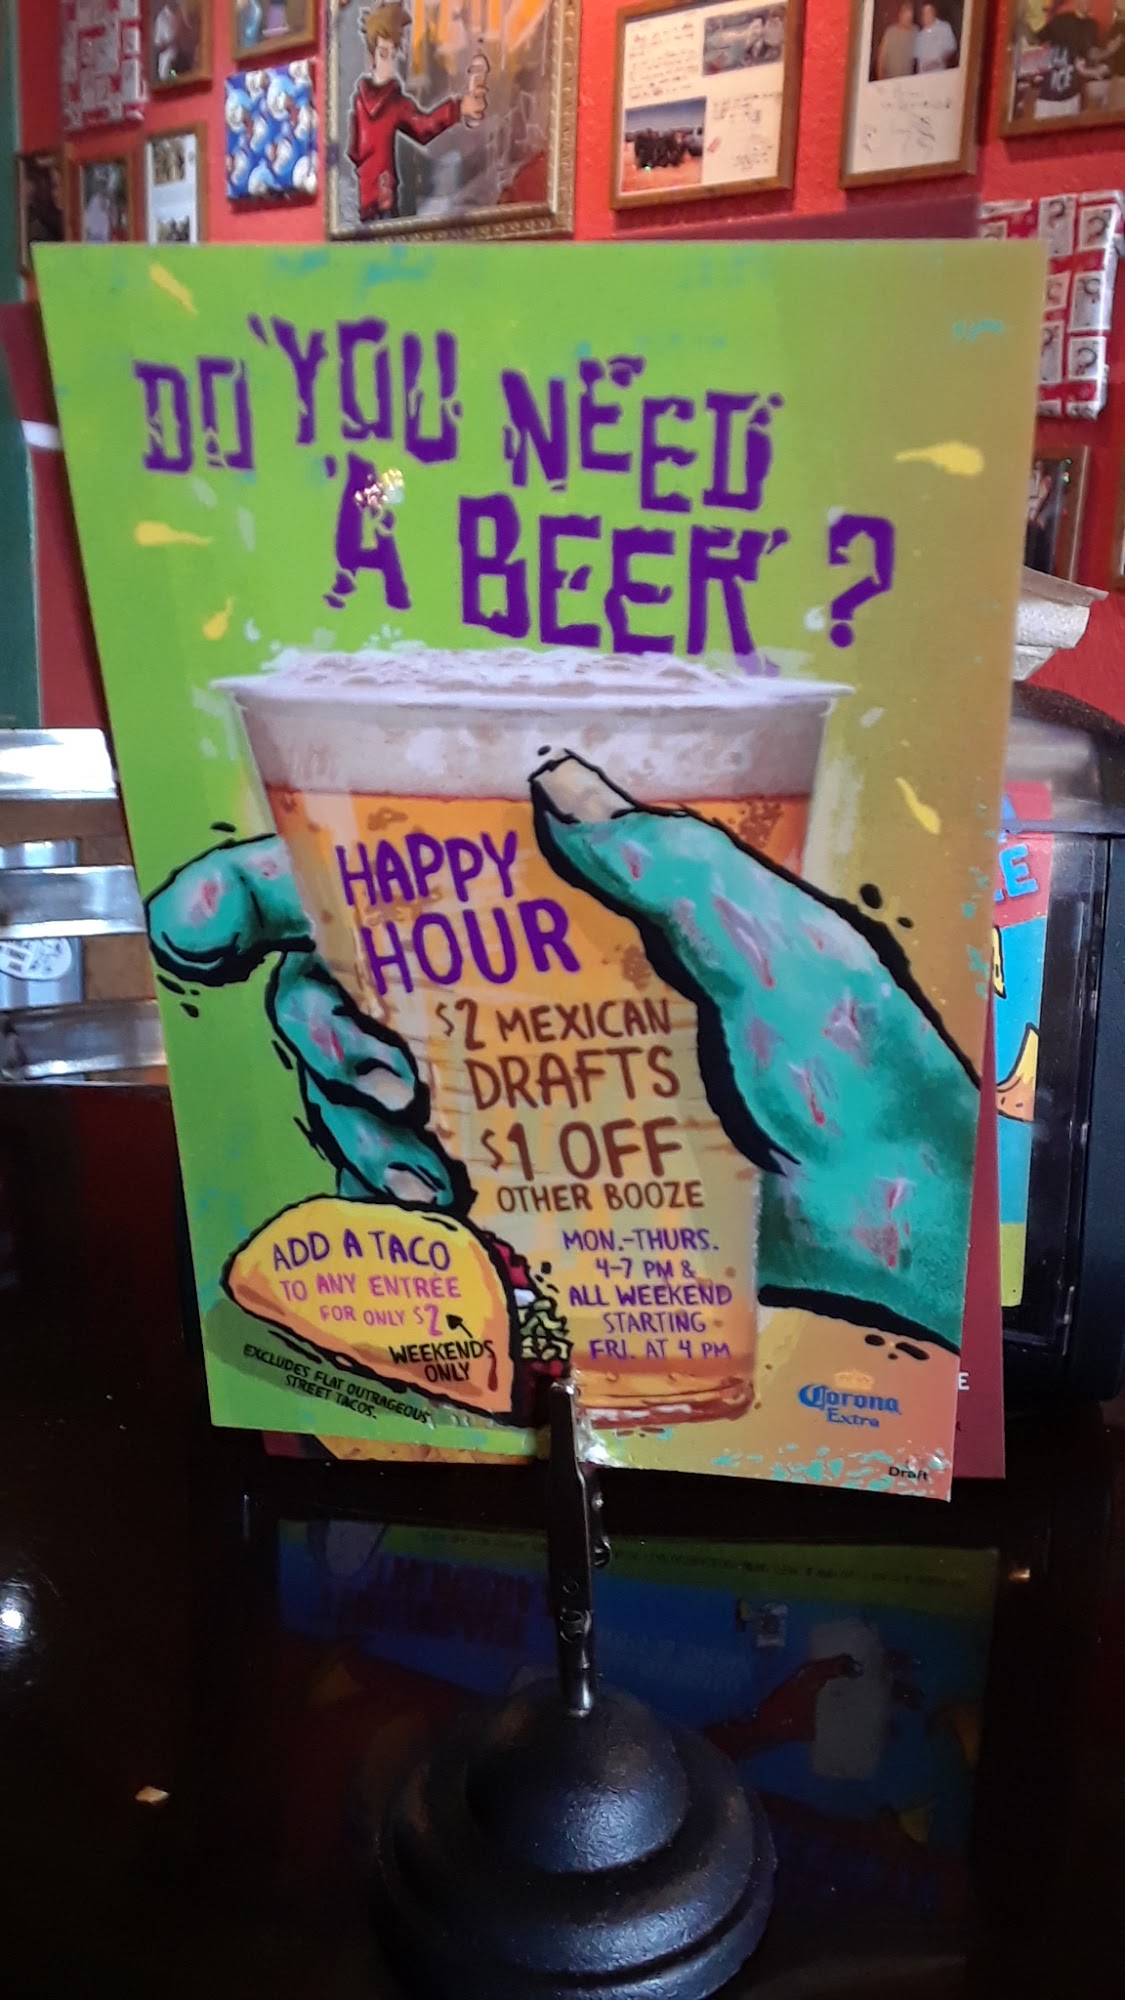 DO YOU NEED
A BEER?
HAPPY
HOUR
$2 MEXICAN
DRAFTS
$1 OFF
OTHER BOOZE
MON.-THURS.
4-7 PM &
ALL WEEKEND
STARTING
FRI. AT 4 PM
ADD A TACO
TO ANY ENTRÉE
FOR ONLY $2
WEEKENDS
ONLY
EXCLUDES FLAT OUTRAGEOUS
STREET TACOS.
Corona
Extra
Draft